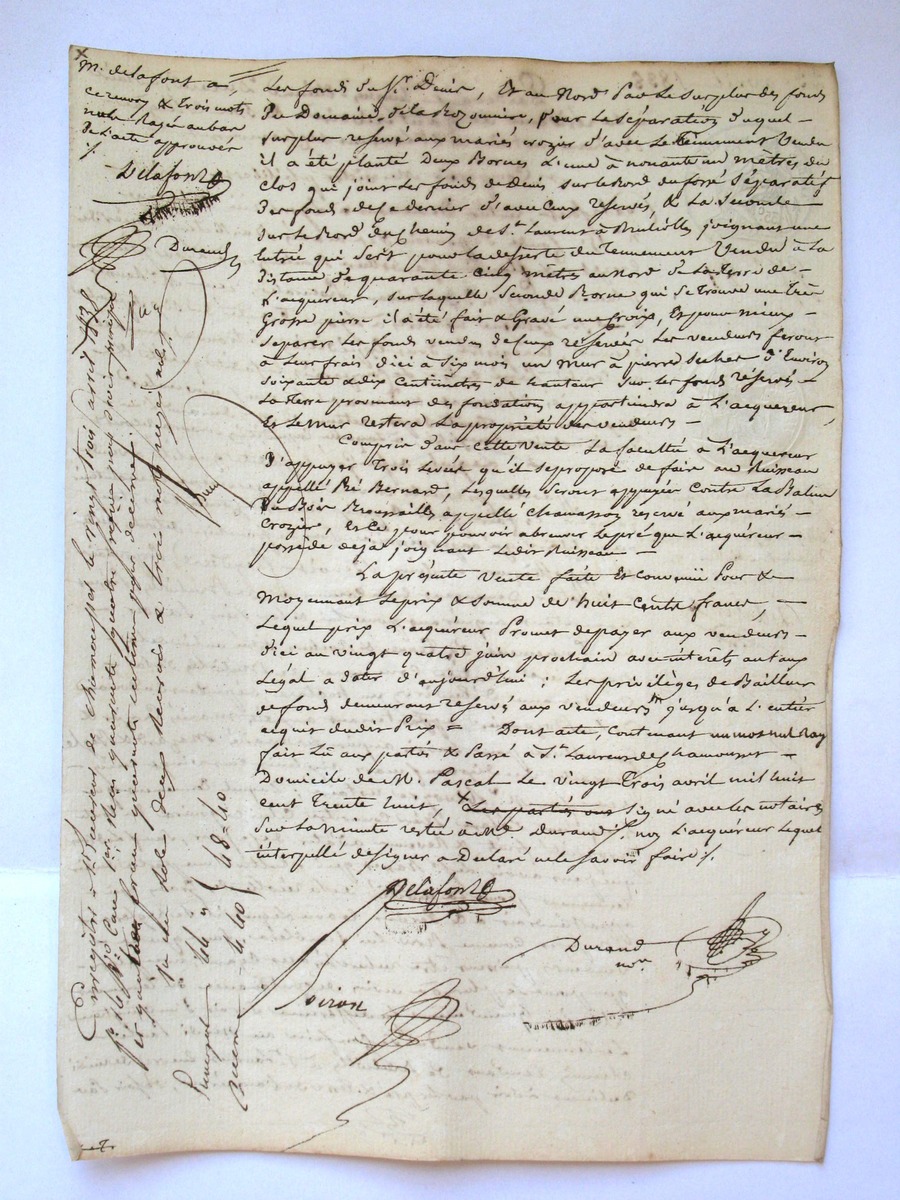 M. delafont a,
ce renvoi & trois mots
nuls rayés au bas
de l'acte approuvés
Delafont
Durand
Les fonds du Sr. Denis, Et au Nord Par le surplus des fonds
Du Domaine de la Rozonniere, pour la séparation duquel
surplus reservé aux mariés crozier d'avec le tennement Vendu
il a été planté Deux Bornes L'une à nonante un mètres du
clos qui joint Les fonds de denis sur le Bord du fossé séparatif
Des fonds de ce dernier d'avec ceux reservés, & La seconde
sur le Bord du Chemin de St. Laurent à joignant une
Entrée qui sert pour la desserte du Tennement Vendu à la
Distance de quarante cinq mètres au Nord de La terre de
L'acquéreur, sur laquelle seconde Borne qui se trouve une très
Grosse pierre il a été fait & Gravé une croix, Et pour mieux
séparer Les fonds vendus de ceux reservés Les vendeurs feront
à leur frais d'ici à six mois un mur à pierre seches d'Environ
soixante & dix centimètres de hauteur sur les fonds réservés
La terre provenant des fondations appartiendra à L'acquereur
Et le mur restera La propriété des vendeurs
Compris dans cette Vente La faculté à L'acquereur
D'appuyer trois levées qu'il se propose de faire au Ruisseau
appellé Pré Bernard, Lesquelles seront appuyées Contre La Balme
Du Bois Broussailles appellé reservé aux mariés
Crozier, Et ce pour pouvoir abreuver le pré que L'acquéreur
possède deja joignant le dit Ruisseau
La présente Vente faite Et convenue Pour &
Moyennant Le prix & somme de huit cents francs,
Lequel prix L'acquéreur Promet de payer aux vendeurs
d'ici au vingt quatre juin prochain avec intérêts au taux
Légal a dater d'aujourd'hui ; Les privilèges de Bailleur
de fond demeurant reservés aux vendeurs jusqu'à L'entier
acquit du dit Prix = Dont acte, Contenant un mot nul Rayé
fait Lu aux parties & Passé à St. Laurent de Chamousset
Domicile de M. Pascal Le vingt Trois avril mil huit
cent Trente huit, Les parties ont signé avec les notaires
sur La minute restée à Me Durand, non L'acquéreur Lequel
interpellé de signer a Declaré ne le savoir faire
Delafont
Durand
nore
Enregistré à St. Laurent de chamousset le vingt trois avril 1838
quarante quatre francs pour droit principal
quatre francs quarante centimes pour decime.
deux renvois & trois mots rayés nuls
Principal 44 "
Decime 4.40
48=40